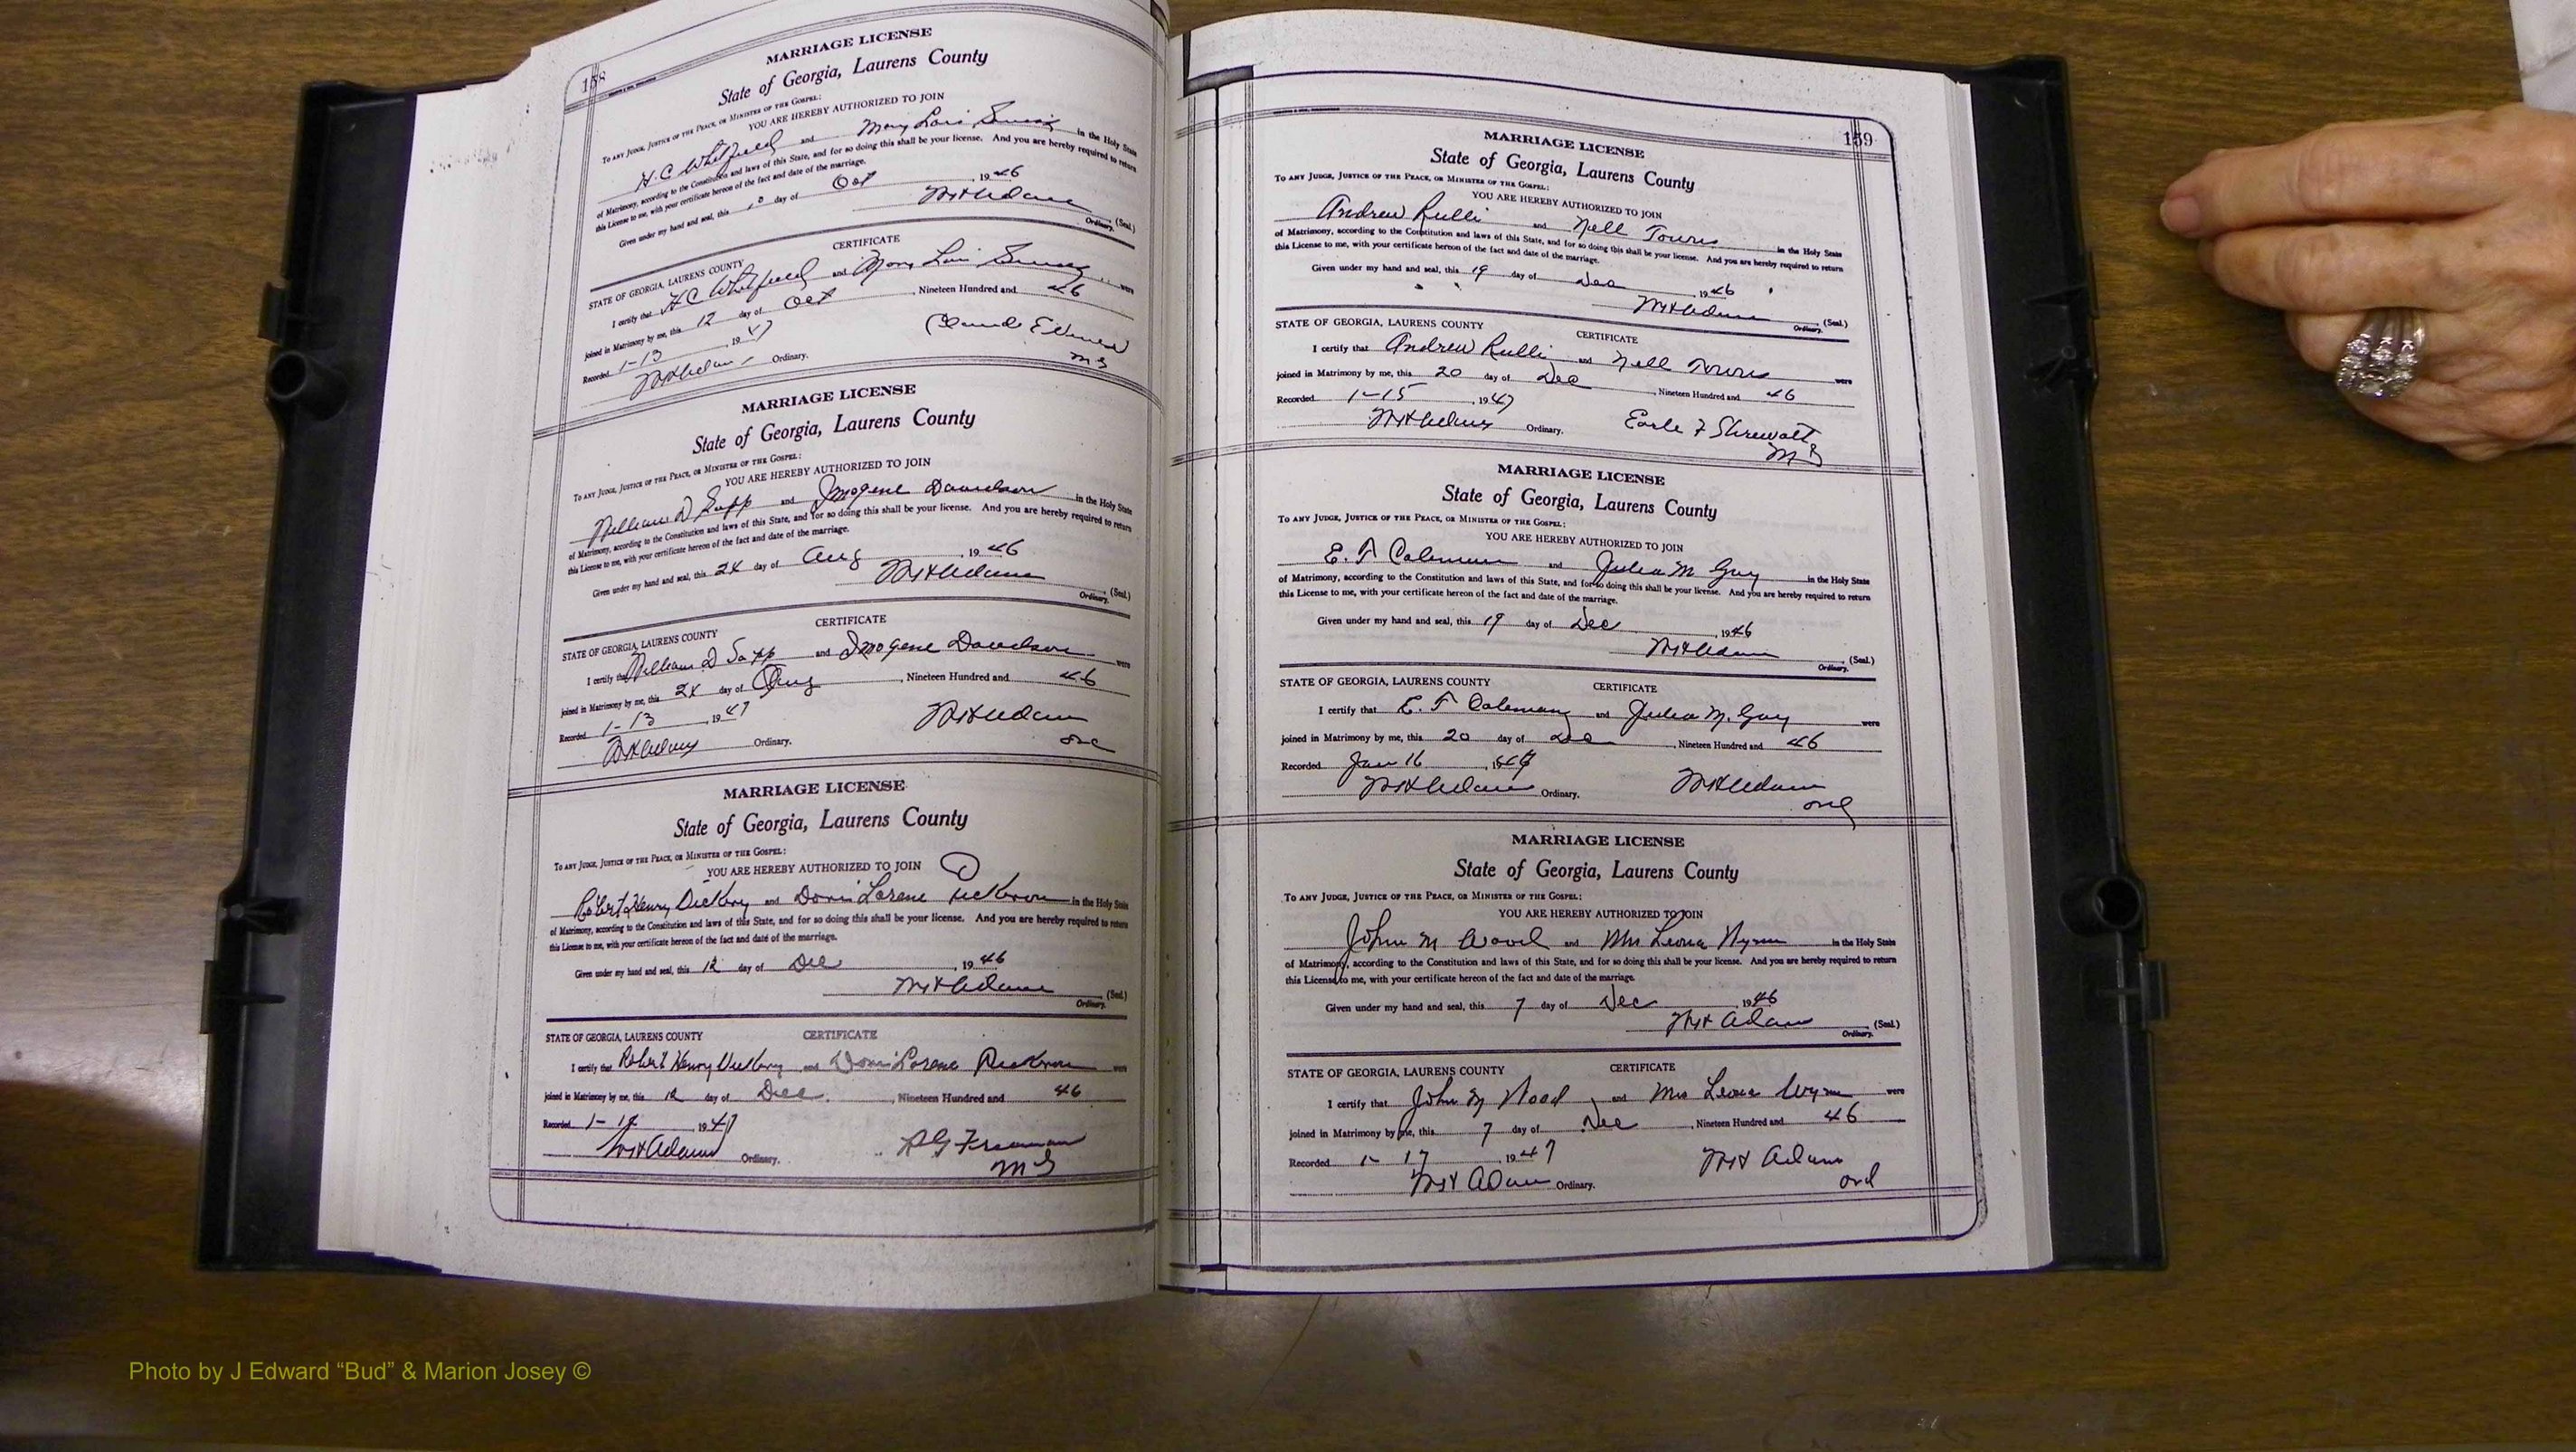 158
MARRIAGE LICENSE
State of Georgia, Laurens County
To ANY JUDGE, JUSTICE OF THE PEACE, OR MINISTER OF THE GOSPEL:
YOU ARE HEREBY AUTHORIZED TO JOIN
H. C. Whitfield and Mary Lois in the Holy State
of Matrimony, according to the Constitution and laws of this State, and for so doing this shall be your license. And you are hereby required to return
this License to me, with your certificate hereon of the fact and date of the marriage.
Given under my hand and seal, this day of Oct, 1946
(Seal.)
Ordinary.
CERTIFICATE
STATE OF GEORGIA, LAURENS COUNTY
I certify that H C Whitfield and Mary Lois were
joined in Matrimony by me, this 12 day of Oct, Nineteen Hundred and 46
Recorded 1-13, 1947
Ordinary.
MARRIAGE LICENSE
State of Georgia, Laurens County
To ANY JUDGE, JUSTICE OF THE PEACE, OR MINISTER OF THE GOSPEL:
YOU ARE HEREBY AUTHORIZED TO JOIN
William D Sapp and Imogene Davidson in the Holy State
of Matrimony, according to the Constitution and laws of this State, and for so doing this shall be your license. And you are hereby required to return
this License to me, with your certificate hereon of the fact and date of the marriage.
Given under my hand and seal, this 24 day of Aug, 1946
(Seal.)
Ordinary.
CERTIFICATE
STATE OF GEORGIA, LAURENS COUNTY
I certify that William D Sapp and Imogene Davidson were
joined in Matrimony by me, this 24 day of Aug, Nineteen Hundred and 46
Recorded 1-13, 1947
Ordinary.
MARRIAGE LICENSE
State of Georgia, Laurens County
To ANY JUDGE, JUSTICE OF THE PEACE, OR MINISTER OF THE GOSPEL:
YOU ARE HEREBY AUTHORIZED TO JOIN
Robert Henry and Doris Lorene in the Holy State
of Matrimony, according to the Constitution and laws of this State, and for so doing this shall be your license. And you are hereby required to return
this License to me, with your certificate hereon of the fact and date of the marriage.
Given under my hand and seal, this 12 day of Dec, 1946
(Seal.)
Ordinary.
STATE OF GEORGIA, LAURENS COUNTY CERTIFICATE
I certify that Robert Henry and Doris Lorene were
joined in Matrimony by me, this 12 day of Dec., Nineteen Hundred and 46
Recorded 1-, 1947
Adams Ordinary.
R G Freeman
M G
159
MARRIAGE LICENSE
State of Georgia, Laurens County
To ANY JUDGE, JUSTICE OF THE PEACE, OR MINISTER OF THE GOSPEL:
YOU ARE HEREBY AUTHORIZED TO JOIN
Andrew Rulli and Nell Towns in the Holy State
of Matrimony, according to the Constitution and laws of this State, and for so doing this shall be your license. And you are hereby required to return
this License to me, with your certificate hereon of the fact and date of the marriage.
Given under my hand and seal, this 19 day of Dec, 1946
(Seal.)
Ordinary.
STATE OF GEORGIA, LAURENS COUNTY CERTIFICATE
I certify that Andrew Rulli and Nell Towns were
joined in Matrimony by me, this 20 day of Dec, Nineteen Hundred and 46
Recorded 1-15, 1947
Ordinary.
Earle F
M G
MARRIAGE LICENSE
State of Georgia, Laurens County
To ANY JUDGE, JUSTICE OF THE PEACE, OR MINISTER OF THE GOSPEL:
YOU ARE HEREBY AUTHORIZED TO JOIN
E. F Coleman and Julia M Guy in the Holy State
of Matrimony, according to the Constitution and laws of this State, and for so doing this shall be your license. And you are hereby required to return
this License to me, with your certificate hereon of the fact and date of the marriage.
Given under my hand and seal, this 19 day of Dec, 1946
(Seal.)
Ordinary.
STATE OF GEORGIA, LAURENS COUNTY CERTIFICATE
I certify that E. F Coleman and Julia M. Guy were
joined in Matrimony by me, this 20 day of Dec, Nineteen Hundred and 46
Recorded Jan 16, 1947
Ordinary.
Ord
MARRIAGE LICENSE
State of Georgia, Laurens County
To ANY JUDGE, JUSTICE OF THE PEACE, OR MINISTER OF THE GOSPEL:
YOU ARE HEREBY AUTHORIZED TO JOIN
John M Wood and Mrs Leona Wynn in the Holy State
of Matrimony, according to the Constitution and laws of this State, and for so doing this shall be your license. And you are hereby required to return
this License to me, with your certificate hereon of the fact and date of the marriage.
Given under my hand and seal, this 7 day of Dec, 1946
Adams (Seal.)
Ordinary.
STATE OF GEORGIA, LAURENS COUNTY CERTIFICATE
I certify that John M Wood and Mrs Leona Wynn were
joined in Matrimony by me, this 7 day of Dec, Nineteen Hundred and 46
Recorded 1-17, 1947
Adams Ordinary.
Adams
Ord
Photo by J Edward “Bud” & Marion Josey ©